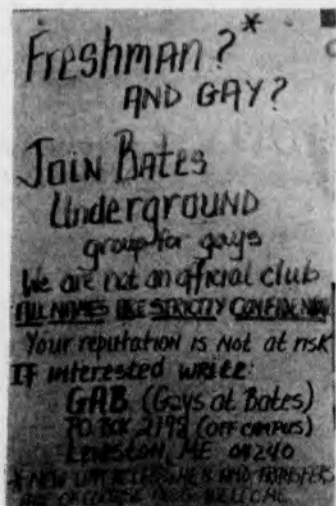 Freshman?*
AND GAY?
JOIN BATES
UndergrOUND
group for gays
We are not an official club
ALL NAMES ARE STRICTLY CONFIDENTIAL
Your reputation is NOT at risk
IF interested WRITE:
GAB (Gays at Bates)
P.O. BOX 2198 (OFF CAMPUS)
LEWISTON, ME 04240
*NEW UPPERCLASSMEN AND TRANSFERS
ARE OF COURSE ALSO WELCOME